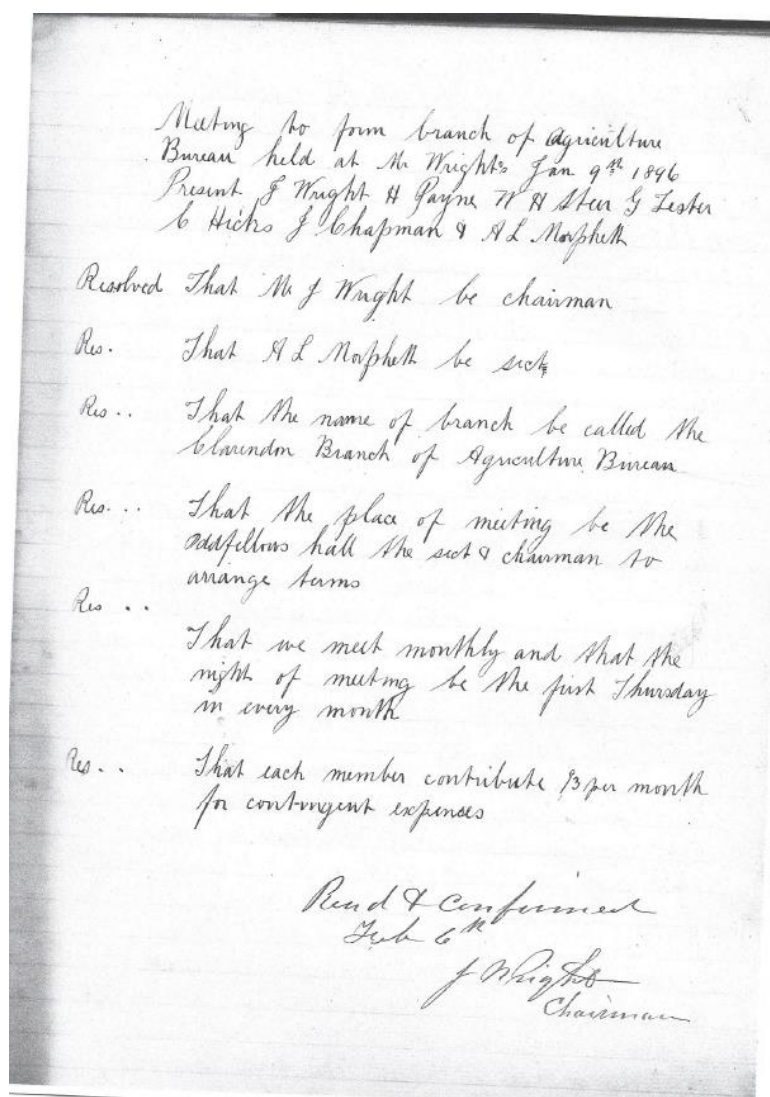 Meeting to form branch of Agriculture
Bureau held at Mr Wrights Jan 9th 1896
Present J Wright H Payne W H Steer G Lester
C Hicks J Chapman & A L Morphett
Resolved That Mr J Wright be chairman
Res. That A L Morphett be sect
Res .. That the name of branch be called the
Clarendon Branch of Agriculture Bureau
Res. .. That the place of meeting be the
Oddfellows hall the sect & chairman to
arrange terms
Res ..
That we meet monthly and that the
night of meeting be the first Thursday
in every month
Res. .. That each member contribute /3 per month
for contingent expenses
Read & confirmed
Feb 6th
J Wright
Chairman